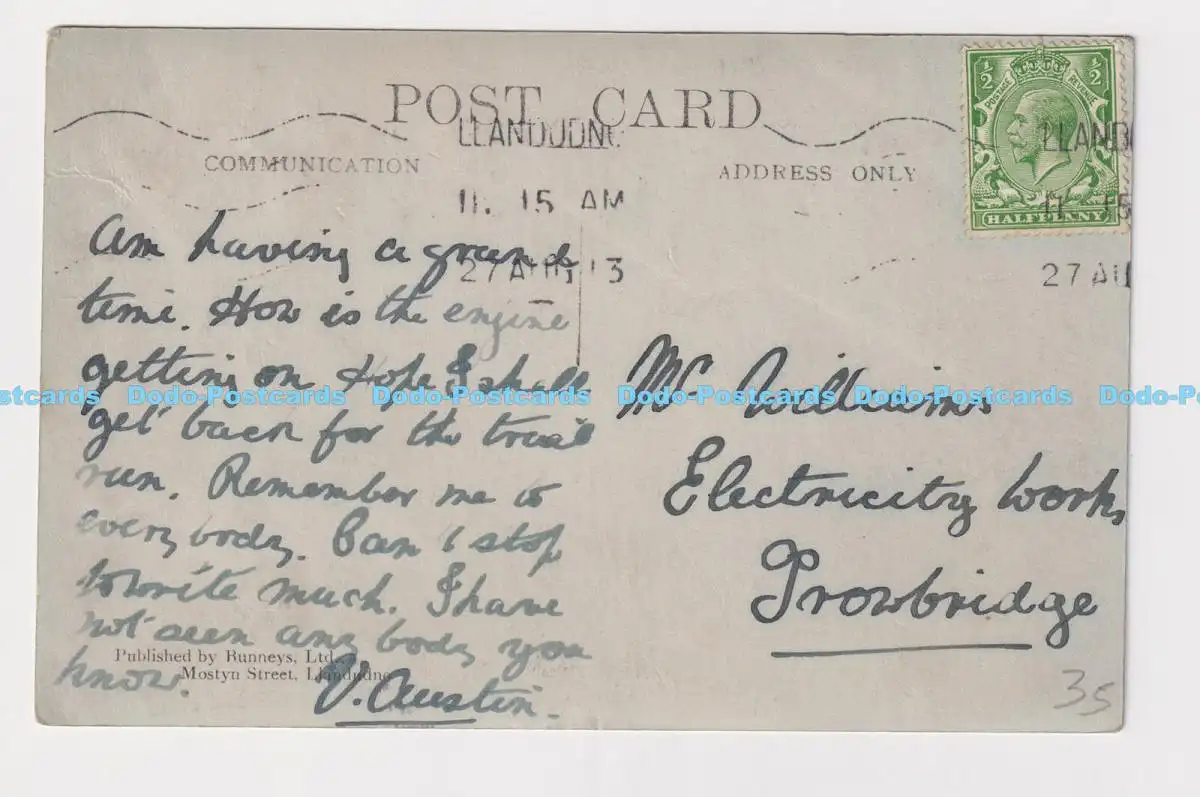 POST CARD
COMMUNICATION
ADDRESS ONLY
½ ½
POSTAGE REVENUE
HALFPENNY
LLANDUDNO
11. 15 AM
27 AUG 13
LLANDU
11. 15
27 AU
am having a grand
time. How is the engine
getting on Hope I shall
get back for the trial
run. Remember me to
everybody. Can't stop
to write much. I have
not seen any body you
know.
V. Austin.
Mr Williams
Electricity Works
Trowbridge
Published by Runneys, Ltd
Mostyn Street, Llandudno
35
Postcards Dodo-Postcards Dodo-Postcards Dodo-Postcards Dodo-Po